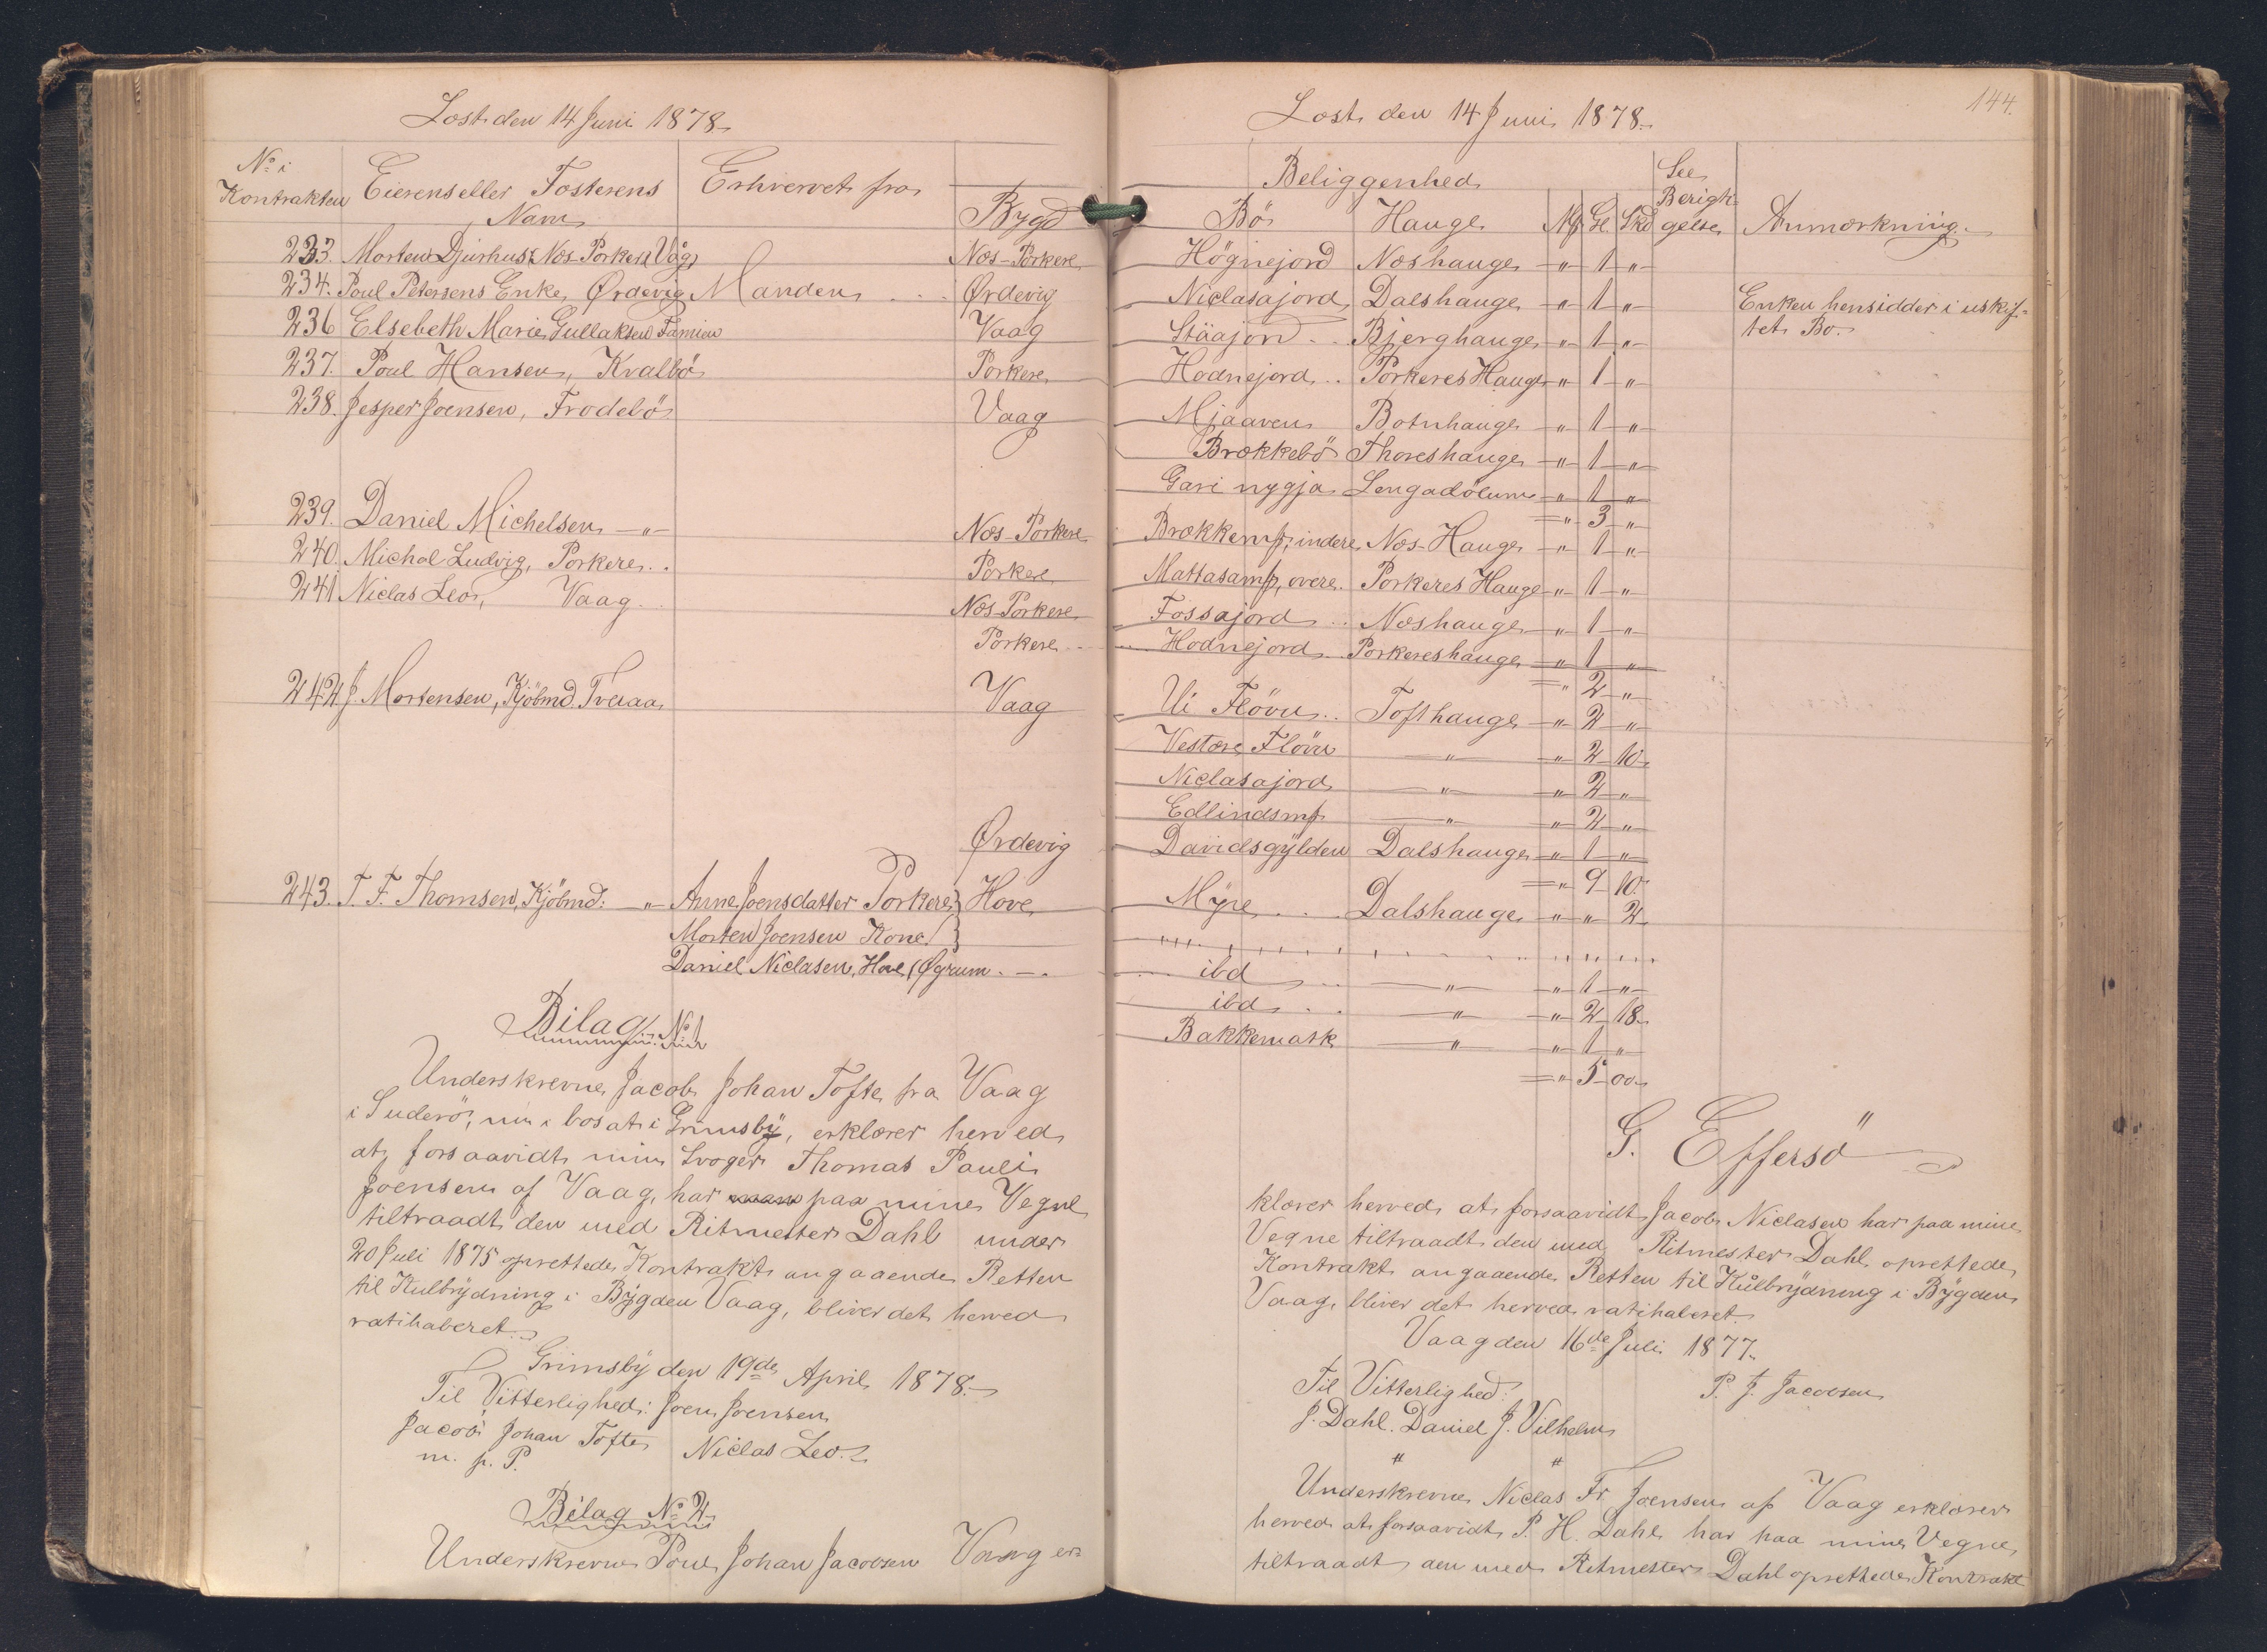 Læst den 14 Juni 1878
No i
Kontrakten Eierens eller Fosterens Erhvervet fra
Navn Bygd
233. Morten Djurhus, Næs-Porkeri Våg Næs-Porkere
234. Poul Petersens Enke, Ørdevig Manden . . . Ørdevig
236 Elsebeth Marie Gullaksen Famien Vaag
237. Poul Hansen, Kvalbö Porkere
238. Jesper Joensen, Frodebö Vaag
239. Daniel Michelsen -"- Næs-Porkere
240. Michal Ludvig, Porkere . . Porkere
241 Niclas Leo, Vaag . . Næs-Porkere
Porkere . .
242 J. Mortensen, Kjöbmd. Tveraa Vaag
Ørdevig
243. T. F. Thomsen, Kjöbmd: " Anne Joensdatter Porkere } Hove
Morten Joensen Kone }
Daniel Niclasen, Hove (Øgrum . - .
Bilag No 1
Underskrevne Jacob Johan Tofte fra Vaag
i Suderö, nu bosat i Grimsby, erklærer herved
at forsaavidt min Svoger Thomas Pauli
Joensen af Vaag, har paa mine Vegne
tiltraadt den med Ritmester Dahl under
20 Juli 1875 oprettede Kontrakt angaaende Retten
til Kulbrydning i Bygden Vaag, bliver det herved
ratihaberet.
Grimsby den 19de April 1878.
Til Vitterlighed: Joen Joensen
Jacob Johan Tofte Niclas Leo.
m. p. P.
Bilag No 2
Underskrevne Poul Johan Jacobsen Vaag er-
144.
Læst den 14 Juni 1878.
Beliggenhed See
Berigti-
Bö Hauge Mk Gl. Skd gelse Anmærkning.
Högnejord Næshauge " 1 "
Niclasajord Dalshauge " 1 " Enken hensidder i uskif-
Stäajord . . Bjerghauge " 1 " tet Bo.
Hodnejord . . Porkeres Hauge " 1 "
Mjaaven Botnhauge " 1 "
Brækkebö Thoreshauge " 1 "
Gasi nygja Lengadölum " 1 "
= " 3 "
Brækkemk, indere Næs-Hauge " 1 "
Mattasamk, övere. Porkeres Hauge " 1 "
Fossajord . . Næshauge " 1 "
Hodnejord . . Porkereshauge " 1 "
= " 2 "
Ui Flövu . . Tofthauge " 2 "
Vestare Flövu " " 2 10
Niclasajord " " 2 "
Edlindsmk " " 2 "
Davidsgylden Dalshauge " 1 "
= " 9 10
Myre . . . Dalshauge " " 2
ibd . . " " 1 "
ibd . . " " 2 18
Bakkemark " " 1 "
= " 5 00
G. Effersö
klærer herved at forsaavidt Jacob Niclasen har paa mine
Vegne tiltraadt den med Ritmester Dahl oprettede
Kontrakt angaaende Retten til Kulbrydning i Bygden
Vaag, bliver det herved ratihaberet.
Vaag den 16de Juli 1877.
Til Vitterlighed: P. J. Jacobsen
J. Dahl. Daniel J. Vilhelm
" "
Underskrevne Niclas Fr. Joensen af Vaag erklærer
herved at forsaavidt P. H. Dahl har paa mine Vegne
tiltraadt den med Ritmester Dahl oprettede Kontrakt